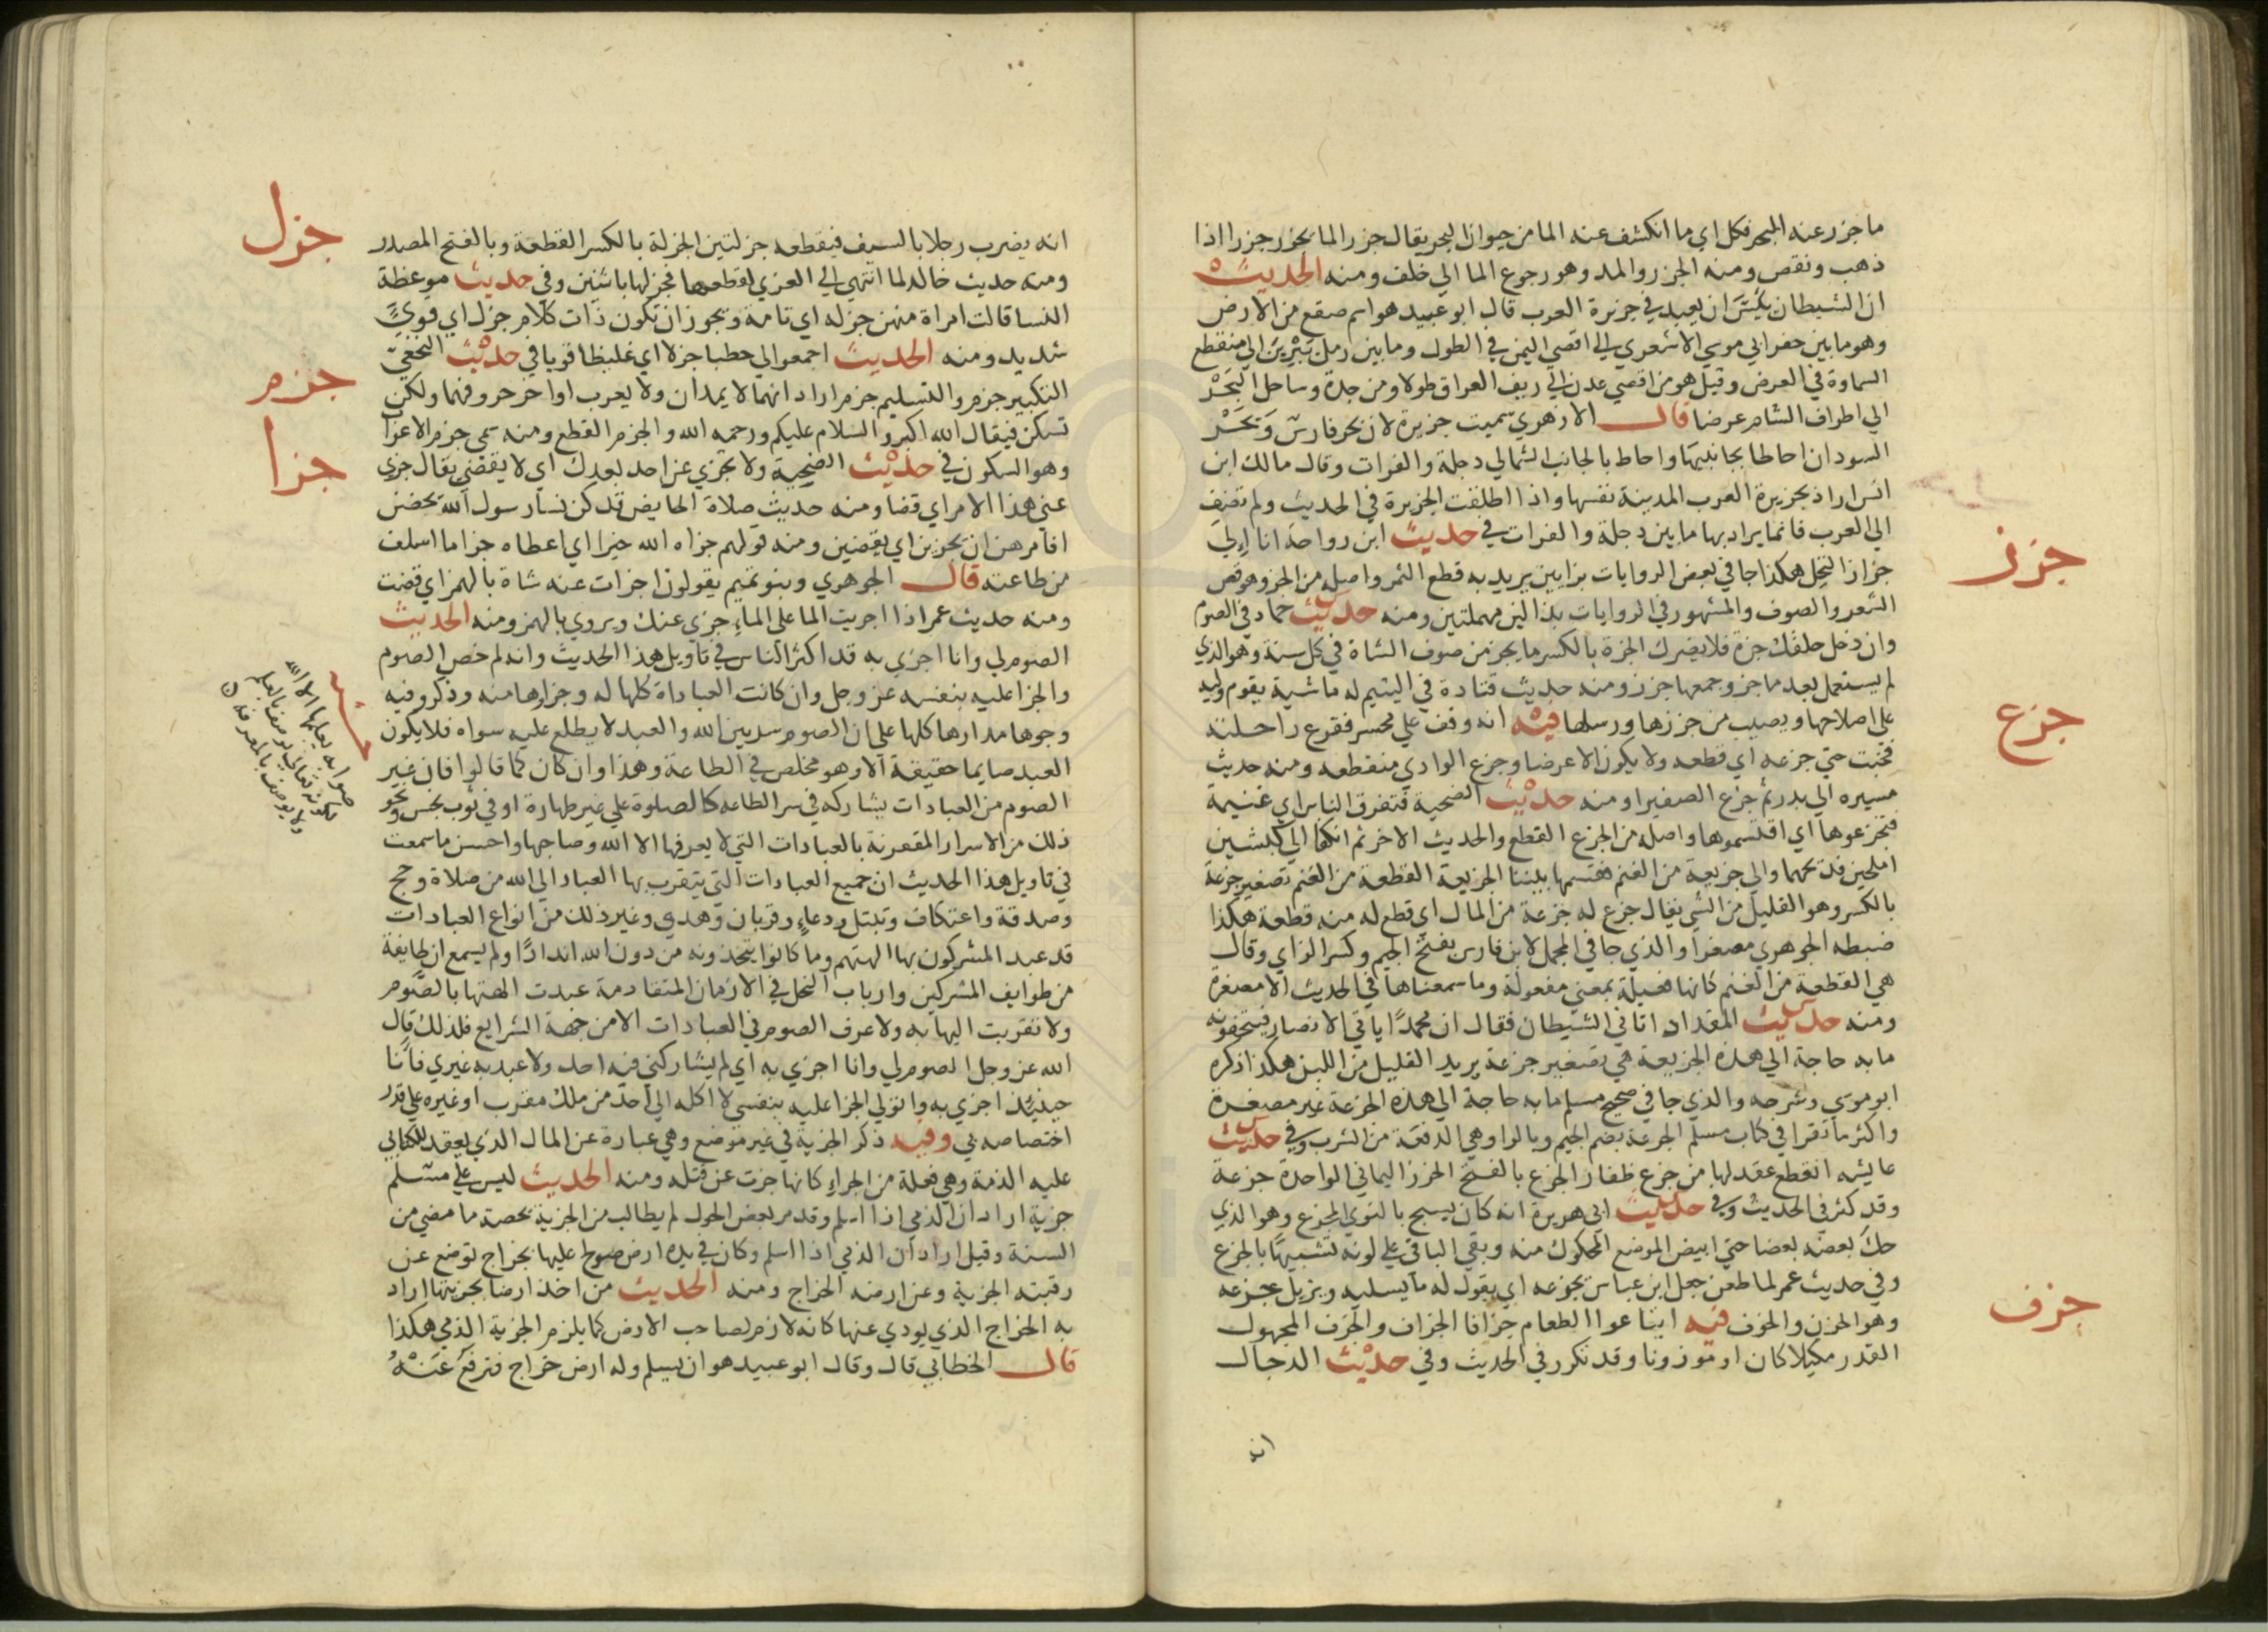 ما جزر عنه البحر فكل اي ما انكشف عنه الما من حيوان البحر يقال جزر الما يجزر جزرا اذا
ذهب ونقص ومنه الجزر والمد وهو رجوع الما الي خلف ومنه الحديث
ان الشيطان يئس ان يعبد في جزيرة العرب قال ابو عبيد هو اسم صقع من الارض
وهو ما بين حفر ابي موسي الاشعري الي اقصي اليمن في الطول وما بين رمل يبرين الي منقطع
السماوة في العرض وقيل هو من اقصي عدن الي ريف العراق طولا ومن جدة وساحل البحر
الي اطراف الشام عرضا قال الازهري سميت جزيرة لان بحر فارس وبحر
السودان احاطا بجانبيها واحاط بالجانب الشمالي دجلة والفرات وقال مالك ابن
انس اراد بجزيرة العرب المدينة نفسها واذا اطلقت الجزيرة في الحديث ولم تضف
الي العرب فانما يراد بها ما بين دجلة والفرات في حديث ابن رواحة انا الي
جزاز النخل هكذا جا في بعض الروايات بزايين يريد به قطع الثمر واصله من الجز وهو قص
الشعر والصوف والمشهور في الروايات بدالين مهملتين ومنه حديث حماد في الصوم
وان دخل حلقك جزة فلا يضرك الجزة بالكسر ما يجز من صوف الشاة في كل سنة وهو الذي
لم يستعمل بعد ما جز وجمعها جزز ومنه حديث قتادة في اليتيم له ماشية يقوم وليه
علي اصلاحها ويصيب من جززها ورسلها فيه انه وقف علي محسر فقرع راحلته
فخبت حتي جزعه اي قطعه ولا يكون الا عرضا وجزع الوادي منقطعه ومنه حديث
مسيره الي بدر ثم جزع الصفيرا ومنه حديث الضحية فتفرق الناس اي غنيمة
فتجزعوها اي اقتسموها واصله من الجزع القطع والحديث الاخر ثم انكفا الي كبشين
املحين فذبحهما والي جزيعة من الغنم فقسمها بيننا الجزيعة القطعة من الغنم تصغير جزعة
بالكسر وهو القليل من الشي يقال جزع له جزعة من المال اي قطع له منه قطعة هكذا
ضبطه الجوهري مصغرا والذي جا في المجمل لابن فارس بفتح الجيم وكسر الزاي وقال
هي القطعة من الغنم كانها فعيلة بمعني مفعولة وما سمعناها في الحديث الا مصغرة
ومنه حديث المقداد اتاني الشيطان فقال ان محمدا ياتي الانصار فيتحفونه
ما به حاجة الي هذه الجزيعة هي تصغير جزعة يريد القليل من اللبن هكذا ذكره
ابو موسي وشرحه والذي جا في صحيح مسلم ما به حاجة الي هذه الجزعة غير مصغرة
واكثر ما تقرا في كتاب مسلم الجرعة بضم الجيم وبالراوهي الدفعة من الشرب وفي حديث
عايشه انقطع عقد لها من جزع ظفار الجزع بالفتح الخرز اليماني الواحدة جزعة
وقد كثر في الحديث وفي حديث ابي هريرة انه كان يسبح بالنوي المجزع وهو الذي
حك بعضه بعضا حتي ابيض الموضع المحكوك منه وبقي الباقي علي لونه تشبيها بالجزع
وفي حديث عمر لما طعن جعل ابن عباس يجزعه اي يقول له ما يسليه ويزيل جزعه
وهو الحزن والخوف فيه ابتاعوا الطعام جزافا الجزاف والجزف المجهول
القدر مكيلا كان او موزونا وقد تكرر في الحديث وفي حديث الدجال
جزز
جزع
جزف
انه
انه يضرب رجلا بالسيف فيقطعه جزلتين الجزلة بالكسر القطعة وبالفتح المصدر
ومنه حديث خالد لما انتهي الي العزي ليقطعها فجزلها باثنين وفي حديث موعظة
النسا قالت امراة منهن جزله اي تامة ويجوز ان تكون ذات كلام جزل اي قوي
شديد ومنه الحديث اجمعوا لي حطبا جزلا اي غليظا قويا في حديث النخعي
التكبير جزم والتسليم جزم اراد انهما لا يمدان ولا يعرب اواخر حروفهما ولكن
تسكن فيقال الله اكبر والسلام عليكم ورحمة الله والجزم القطع ومنه سمي جزم الاعراب
وهو السكون في حديث الضحية ولا تجزي عن احد بعدك اي لا يقضي يقال جزي
عني هذا الامر اي قضا ومنه حديث صلاة الحايض قد كن نسا رسول الله يحضن
افامرهن ان يجزين اي يقضين ومنه قولهم جزاه الله خيرا اي اعطاه جزا ما اسلف
من طاعته قال الجوهري وبنو تميم يقولون اجزات عنه شاة بالهمز اي قضت
ومنه حديث عمر اذا اجريت الما علي الماء جزي عنك ويروي بالهمز ومنه الحديث
الصوم لي وانا اجزي به قد اكثر الناس في تاويل هذا الحديث وانه لم خص الصوم
والجزا عليه بنفسه عز وجل وان كانت العباداة كلها له وجزاوها منه وذكروا فيه
وجوها مدارها كلها علي ان الصوم سر بين الله والعبد لا يطلع عليه سواه فلا يكون
العبد صايما حقيقة الا وهو مخلص في الطاعة وهذا وان كان كما قالوا فان غير
الصوم من العبادات يشاركه في سر الطاعه كالصلوة علي غير طهارة او في ثوب نجس ونحو
ذلك من الاسرار المقترنة بالعبادات التي لا يعرفها الا الله وصاحبها واحسن ما سمعت
في تاويل هذا الحديث ان جميع العبادات التي يتقرب بها العباد الي الله من صلاة وحج
وصدقة واعتكاف وتبتل ودعاء وقربان وهدي وغير ذلك من انواع العبادات
قد عبد المشركون بها الهتهم وما كانوا يتخذونه من دون الله اندادا ولم يسمع ان طايفة
من طوايف المشركين وارباب النحل في الازمان المتقادمة عبدت الهتها بالصوم
ولا تقربت اليها به ولا عرف الصوم في العبادات الا من جهة الشرايع فلذلك قال
الله عز وجل الصوم لي وانا اجزي به اي لم يشاركني فيه احد ولا عبد به غيري فانا
حينيذ اجزي به واتولي الجزا عليه بنفسي لا اكله الي احد من ملك مقرب او غيره علي قدر
اختصاصه بي وفيه ذكر الجزية في غير موضع وهي عبارة عن المال الذي يعقد للكتابي
عليه الذمة وهي فعلة من الجزاء كانها جزت عن قتله ومنه الحديث ليس علي مسلم
جزية اراد ان الذمي اذا اسلم وقد مر بعض الحول لم يطالب من الجزية بحصة ما مضي من
السنة وقيل اراد ان الذمي اذا اسلم وكان في يده ارض صولح عليها بخراج توضع عن
رقبته الجزية وعن ارضه الخراج ومنه الحديث من اخذ ارضا بجزيتها اراد
به الخراج الذي يودي عنها كانه لازم لصاحب الارض كما يلزم الجزية الذمي هكذا
قال الخطابي قال وقال ابو عبيد هو ان يسلم وله ارض خراج فترفع عنه
جزل
جزم
جزا
صوابه يعلمها الا الله
لكونه تعالي يوصف بالعلم
ولا يوصف بالمعرفة